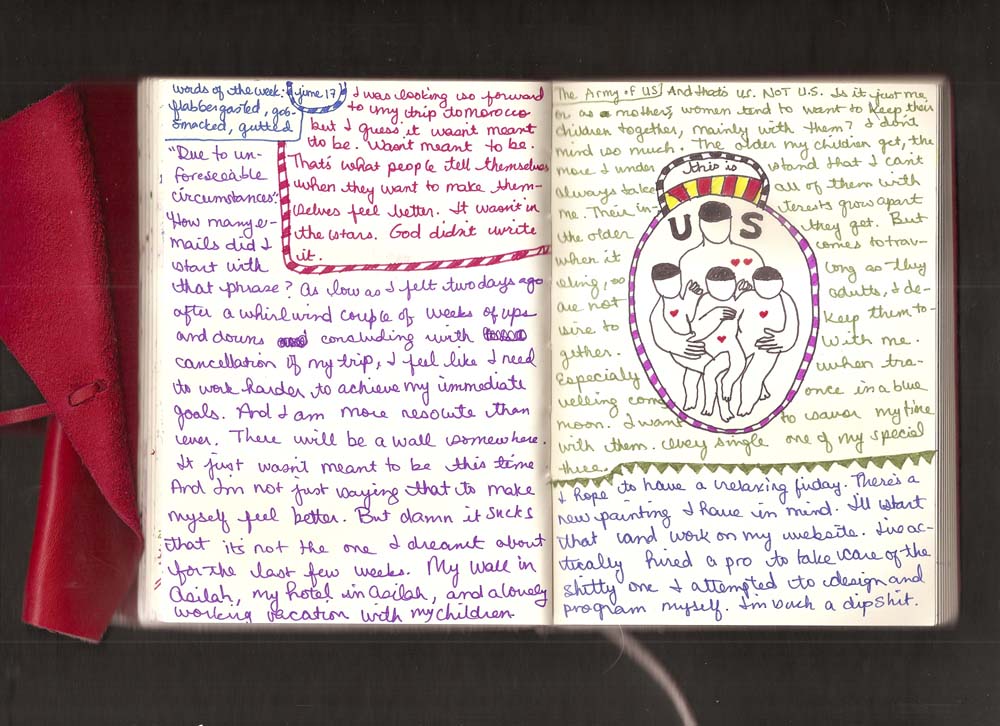 words of the week:
flabbergasted, gob-
smacked, gutted
june 17
I was looking so forward
to my trip to morocco
but I guess it wasn't meant
to be. Wasn't meant to be.
That's what people tell themselves
when they want to make them-
selves feel better. It wasn't in
the stars. God didn't write
it.
"Due to un-
foreseeable
circumstances".
How many e-
mails did I
start with
that phrase? As low as I felt two days ago
after a whirlwind couple of weeks of ups
and downs concluding with
cancellation of my trip, I feel like I need
to work harder to achieve my immediate
goals. And I am more resolute than
ever. There will be a wall somewhere.
It just wasn't meant to be this time
And I'm not just saying that to make
myself feel better. But damn it sucks
that it's not the one I dreamt about
for the last few weeks. My wall in
Asilah, my hotel in Asilah, and a lovely
working vacation with my children.
The Army of US! And that's us. NOT U.S. Is it just me
or as a mother, women tend to want to keep their
children together, mainly with them? I don't
mind so much. The older my children get, the
more I understand that I can't
always take all of them with
me. Their interests grow apart
the older they get. But
when it comes to trav-
eling, so long as they
are not adults, I de-
sire to keep them to-
gether. With me.
Especially when tra-
velling comes once in a blue
moon. I want to savor my time
with them. Every single one of my special
three.
this is
US
I hope to have a relaxing friday. There's a
new painting I have in mind. I'll start
that and work on my website. I've ac-
tually hired a pro to take care of the
shitty one I attempted to design and
program myself. I'm such a dipshit.